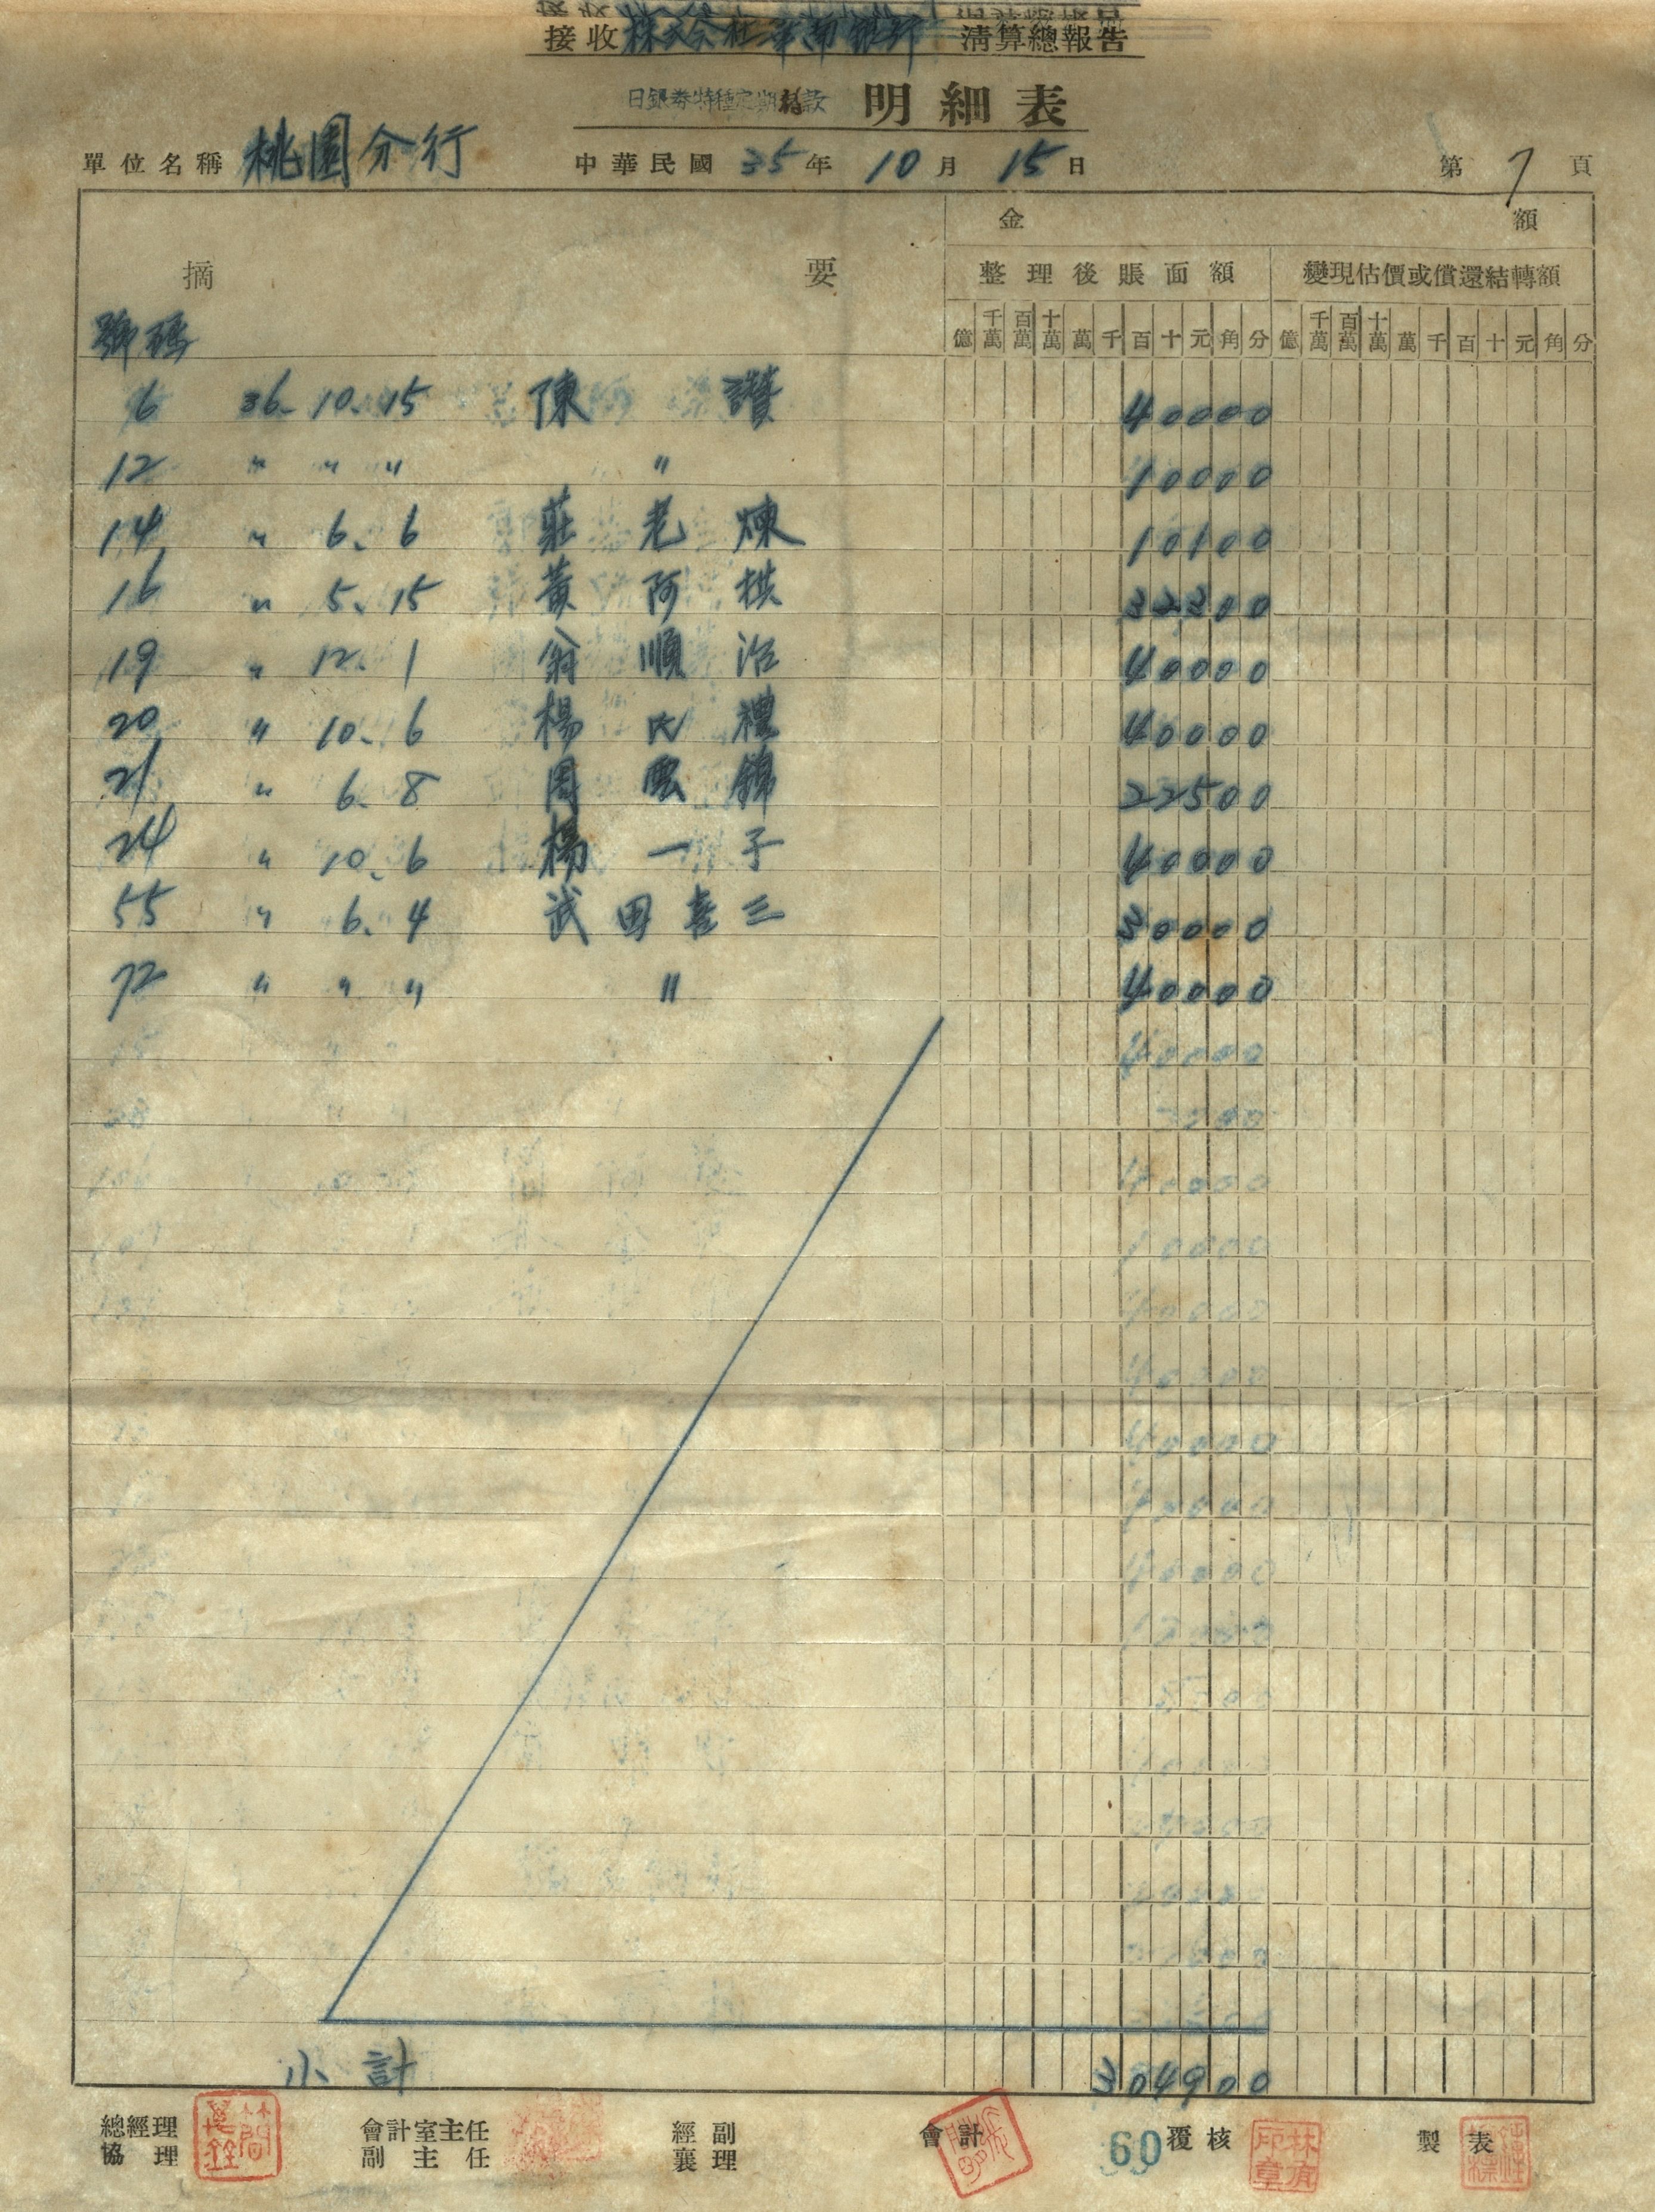 接收株式会社華南銀行清算總報告
日銀劵特種定期存款 明細表
單位名稱 桃園分行 中華民國 35年 10月 15日 第 7 頁
摘要 金額
整理後賬面額 變現估價或償還結轉額
億 千萬 百萬 十萬 萬 千 百 十 元 角 分 億 千萬 百萬 十萬 萬 千 百 十 元 角 分
號碼
6 36. 10. 15 陳 讃 40000
12 〃 〃 〃 〃 10000
14 〃 6. 6 莊老煉 10100
16 〃 5. 15 黃阿棋 32300
19 〃 12. 1 翁順治 40000
20 〃 10. 6 楊氏禮 40000
21 〃 6. 8 周雲錦 22500
24 〃 10. 6 楊一子 40000
55 〃 6. 4 武田喜三 30000
72 〃 〃 〃 〃 40000
小計 304900
總經理 會計室主任 經副 會計 60 覆核 製表
協理 副主任 襄理